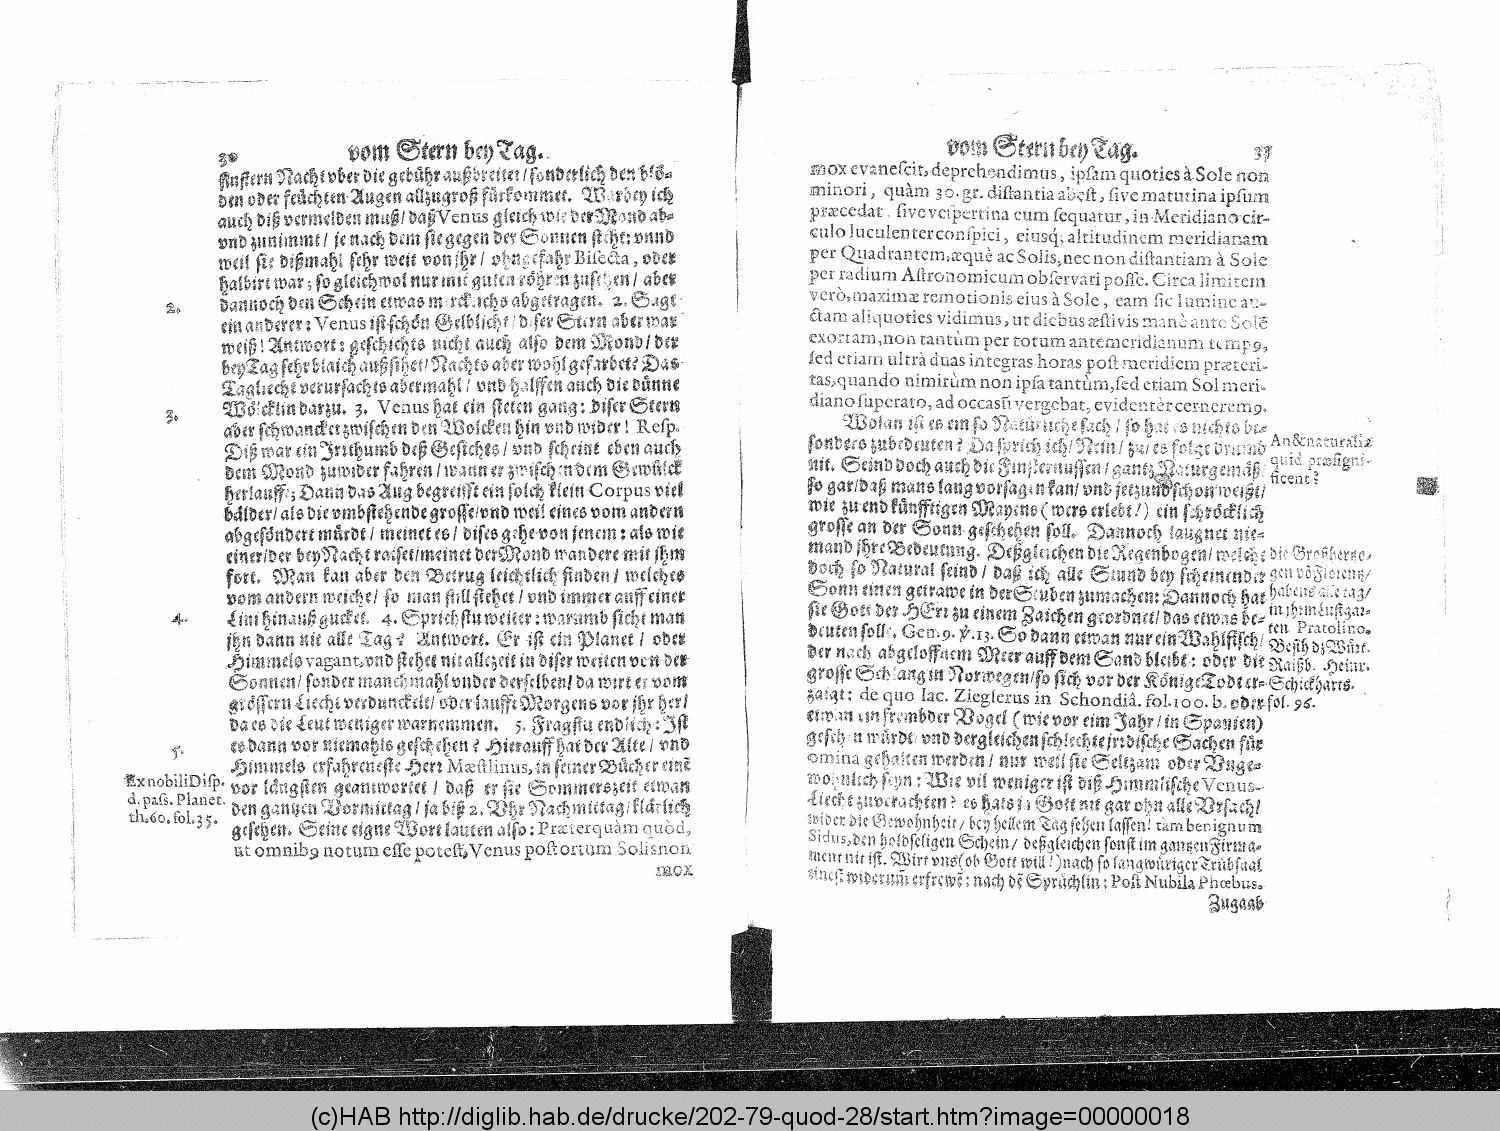 30 vom Stern bey Tag.
finstern Nacht vber die gebühr außbreitet/ sonderlich den blö-
den oder feüchten Augen allzugroß fürkommet. Warbey ich
auch diß vermelden muß/ daß Venus gleich wie der Mond ab-
vnd zunimmt/ je nach dem sie gegen der Sonnen steht: vnnd
weil sie dißmahl sehr weit von jhr/ ohngefahr Bisecta, oder
halbirt war; so gleichwol nur mit guten röhren zusehen/ aber
2. dannoch den Schein etwas mercklichs abgetragen. 2. Sagt
ein anderer: Venus ist schön Gelblicht/ diser Stern aber war
weiß! Antwort: geschichts nicht auch also dem Mond/ der
bey Tag sehr blaich außsihet/ Nachts aber wohl gefarbet? Das
Tagliecht verursachts abermahl/ vnd halffen auch die dünne
3. Wölcklin darzu. 3. Venus hat ein steten gang: diser Stern
aber schwancket zwischen den Wolcken hin vnd wider! Resp.
Diß war ein Irrthumb deß Gesichts/ vnd scheint eben auch
dem Mond zuwider fahren/ wann er zwischen dem Gewülck
herlaufft; Dann das Aug begreifft ein solch klein Corpus viel
bälder/ als die vmbstehende grosse/ vnd weil eines vom andern
abgesöndert würdt/ meinet es/ dises gehe von jenem: als wie
einer/ der bey Nacht raiset/ meinet der Mond wandere mit jhm
fort. Man kan aber den Betrug leichtlich finden/ welches
vom andern weiche/ so man still stehet/ vnd immer auff einer
4. Lini hinauß gucket. 4. Sprichstu weiter: warumb sicht man
jhn dann nit alle Tag? Antwort. Er ist ein Planet/ oder
Himmels vagant, vnd stehet nit allezeit in diser weiten von der
Sonnen/ sonder manchmahl vnder derselben/ da wirt er vom
grössern Liecht verdunckelt/ oder laufft Morgens vor jhr her/
da es die Leut weniger warnemmen. 5. Fragstu endlich: Ist
5. es dann vor niemahls geschehen? Hierauff hat der Alte/ vnd
Himmels erfahreneste Herr Mæstlinus, in seiner Bücher einē
Ex nobili Disp. vor längsten geantwortet/ daß er sie Sommerszeit etwan
d. pass. Planet. den gantzen Vormittag/ ja biß 2. Vhr Nachmittag/ klärlich
th. 60. fol. 35. gesehen. Seine eigne Wort lauten also: Præterquàm quòd,
ut omnibꝰ notum esse potest, Venus post ortum Solis non
mox
vom Stern bey Tag.
mox evanescit, deprehendimus, ipsam quoties à Sole non
minori, quàm 30. gr. distantia abest, sive maturina ipsum
præcedat, sive vespertina eum sequatur, in Meridiano cir-
culo luculenter conspici, eiusq; altitudinem meridianam
per Quadrantem, æquè ac Solis, nec non distantiam à Sole
per radium Astronomicum observari posse. Circa limitem
verò, maximæ remotionis eius à Sole, eam sic lumine au-
ctam aliquoties vidimus, ut diebus æstivis manè ante Solē
exortam, non tantùm per totum antemeridianum tempꝰ,
sed etiam ultrà duas integras horas post meridiem præteri-
tas, quando nimirùm non ipsa tantùm, sed etiam Sol meri-
diano superato, ad occasū vergebat, evidentèr cerneremꝰ.
Wolan ist es ein so Natürliche sach/ so hat es nichts be-
sonders zubedeuten? Da sprich ich/ Nein/ es folgt drumb An & naturaliæ
nit. Seind doch auch die Finsternussen/ gantz Naturgemäß/ quid præsigni-
so gar/ daß mans lang vorsagen kan/ vnd jetzund schon weißt/ ficent?
wie zu end künfftigen Mayens (wers erlebt!) ein schröcklich
grosse an der Sonn geschehen soll. Dannoch laugnet nie-
mand jhre Bedeutung. Deßgleichen die Regenbogen/ welche die Großhertzo-
doch so Natural seind/ daß ich alle Stund bey scheinender gen vō Florentz/
Sonn einen getrawe in der Stuben zumachen: Dannoch hat habens alle tag/
sie Gott der HErr zu einem Zaichen geordnet/ das etwas be- in jhrm Lustgar-
deuten solle. Gen. 9. ℣. 13. So dann etwan nur ein Wahlfisch/ ten Pratolino.
der nach abgeloffnem Meer auff dem Sand bleibt: oder die Besih dz Würt.
grosse Schlang in Norwegen/ so sich vor der Könige Todt er- Raißb. Heinr.
zaigt: de quo Iac. Zieglerus in Schondiâ. fol. 100. b. oder Schickharts.
etwan ein frembder Vogel (wie vor eim Jahr/ in Spanien) fol. 96.
geschen würdt vnd dergleichen schlechte jrrdische Sachen für
omina gehalten werden/ nur weil sie Seltzam oder Vnge-
wohnlich seyn: Wie vil weniger ist diß Himmlische Venus-
Liecht zuverachten? es hats ja Gott nit gar ohn alle Vrsach/
wider die Gewohnheit/ bey hellem Tag sehen lassen! tàm benignum
Sidus, den holdseligen Schein/ deßgleichen sonst im gantzen Firma-
ment nit ist. Wirt vns (ob Gott will!) nach so langwüriger Trübsaal
eines widerum̄ erfrewē: nach dē Sprüchlin: Post Nubila Phœbus.
Zugaab
(c)HAB http://diglib.hab.de/drucke/202-79-quod-28/start.htm?image=00000018